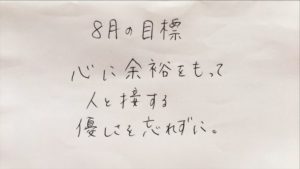 8月の目標
心に余裕をもって
人と接する
優しさを忘れずに。